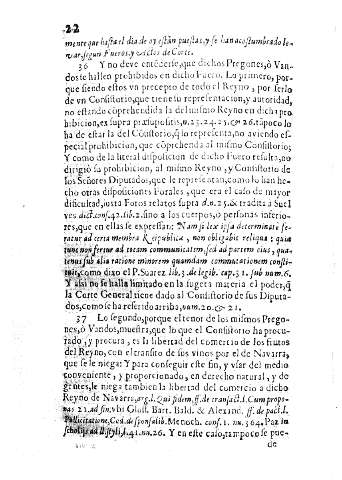 22
mente que hasta el dia de oy están puestas, y se han acostumbrado le-
var, segun Fueros, y Actos de Corte.
36 Y no deve entẽderse, que dichos Pregones, ò Van-
dos se hallen prohibidos en dicho Fuero. Lo primero, por-
que siendo estos vn precepto de todo el Reyno, por serlo
de vn Consistorio, que tiene su representacion, y autoridad,
no estando cõprehendida la del mismo Reyno en dicha pro
hibicion, ex supra præsupositis, n. 23. 24. 25. & 26. tãpoco lo
ha de estar la del Cõsistorio, q̃ lo representa, no aviendo es-
pecial prohibicion, que cõprehenda al mismo Consistorio;
Y como de la literal disposicion de dicho Fuero resulta, no
dirigiò su prohibicion, al mismo Reyno, y Consistorio de
los Señores Diputados, que le representan, como lo han he-
cho otras disposiciones Forales, que era el caso de mayor
dificultad, iuxta Fotos relatos supra d. n. 25. & tradita à Suel
ves dict. cons. 42. lib. 2. sino a los cuerpos, ò personas inferio-
res, que en ellas se expressan: Nam si lex ipsa determinatè fe-
ratur ad certa membra Republicæ, non obligabit reliqua: quia
tunc non fertur ad totam communitatem, sed ad partem eius, qua-
tenus sub alia ratione minorem quamdam communitatem consti-
tuit, como dixo el P. Suarez lib. 3. de legib. cap. 31. sub num. 6.
Y assi no se halla limitado en la sugeta materia el poder, q̃
la Corte General tiene dado al Consistorio de sus Diputa-
dos, como se ha referido arriba, num. 20. & 21.
37 Lo segundo, porque el tenor de los mismos Prego-
nes, ò Vandos, muestra, que lo que el Consistorio ha procu-
rado, y procura, es la libertad del comercio de los frutos
del Reyno, con el transito de sus vinos por el de Navarra,
que se le niega: Y para conseguir este fin, y vsar del medio
conveniente, y proporcionado, en derecho natural, y de
gentes, le niega tambien la libertad del comercio a dicho
Reyno de Navarra, arg. l. Qui fidem, ff. de transact. l. Cum propo-
nas 21. ad fin. vbi Gloss. Bart. Bald. & Alexand. ff. de pact. l.
Pollicitatione, Cod. de sponsalib. Menoch. cons. 1. nu. 364. Paz in
scholijs ad ll. styli, l. 41. nu. 26. Y en este caso, tampoco se pue-
de